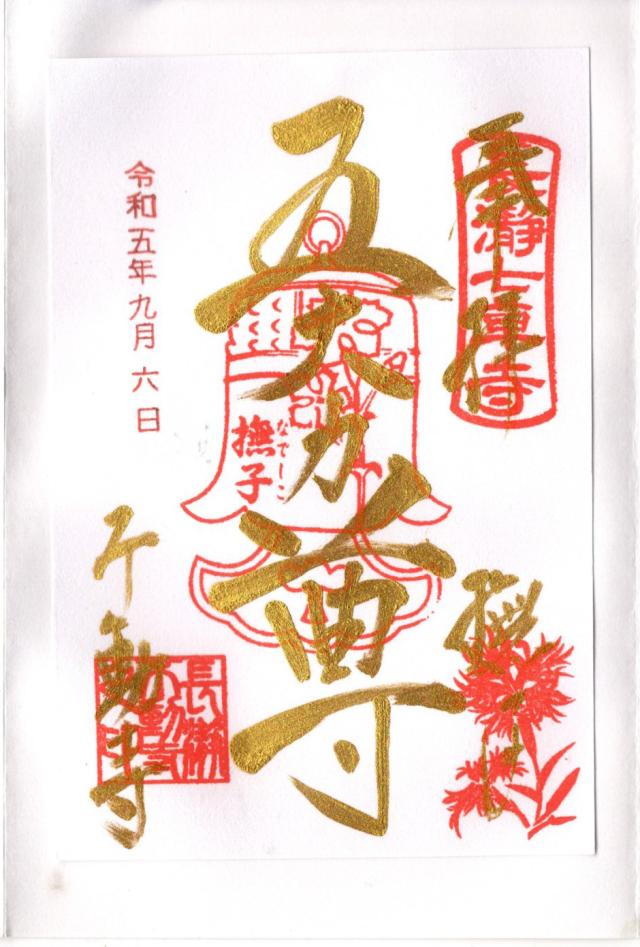 奉拝
長瀞七草寺
撫子
五大力尊
撫子
なでしこ
令和五年九月六日
不動寺
長瀞
不動寺